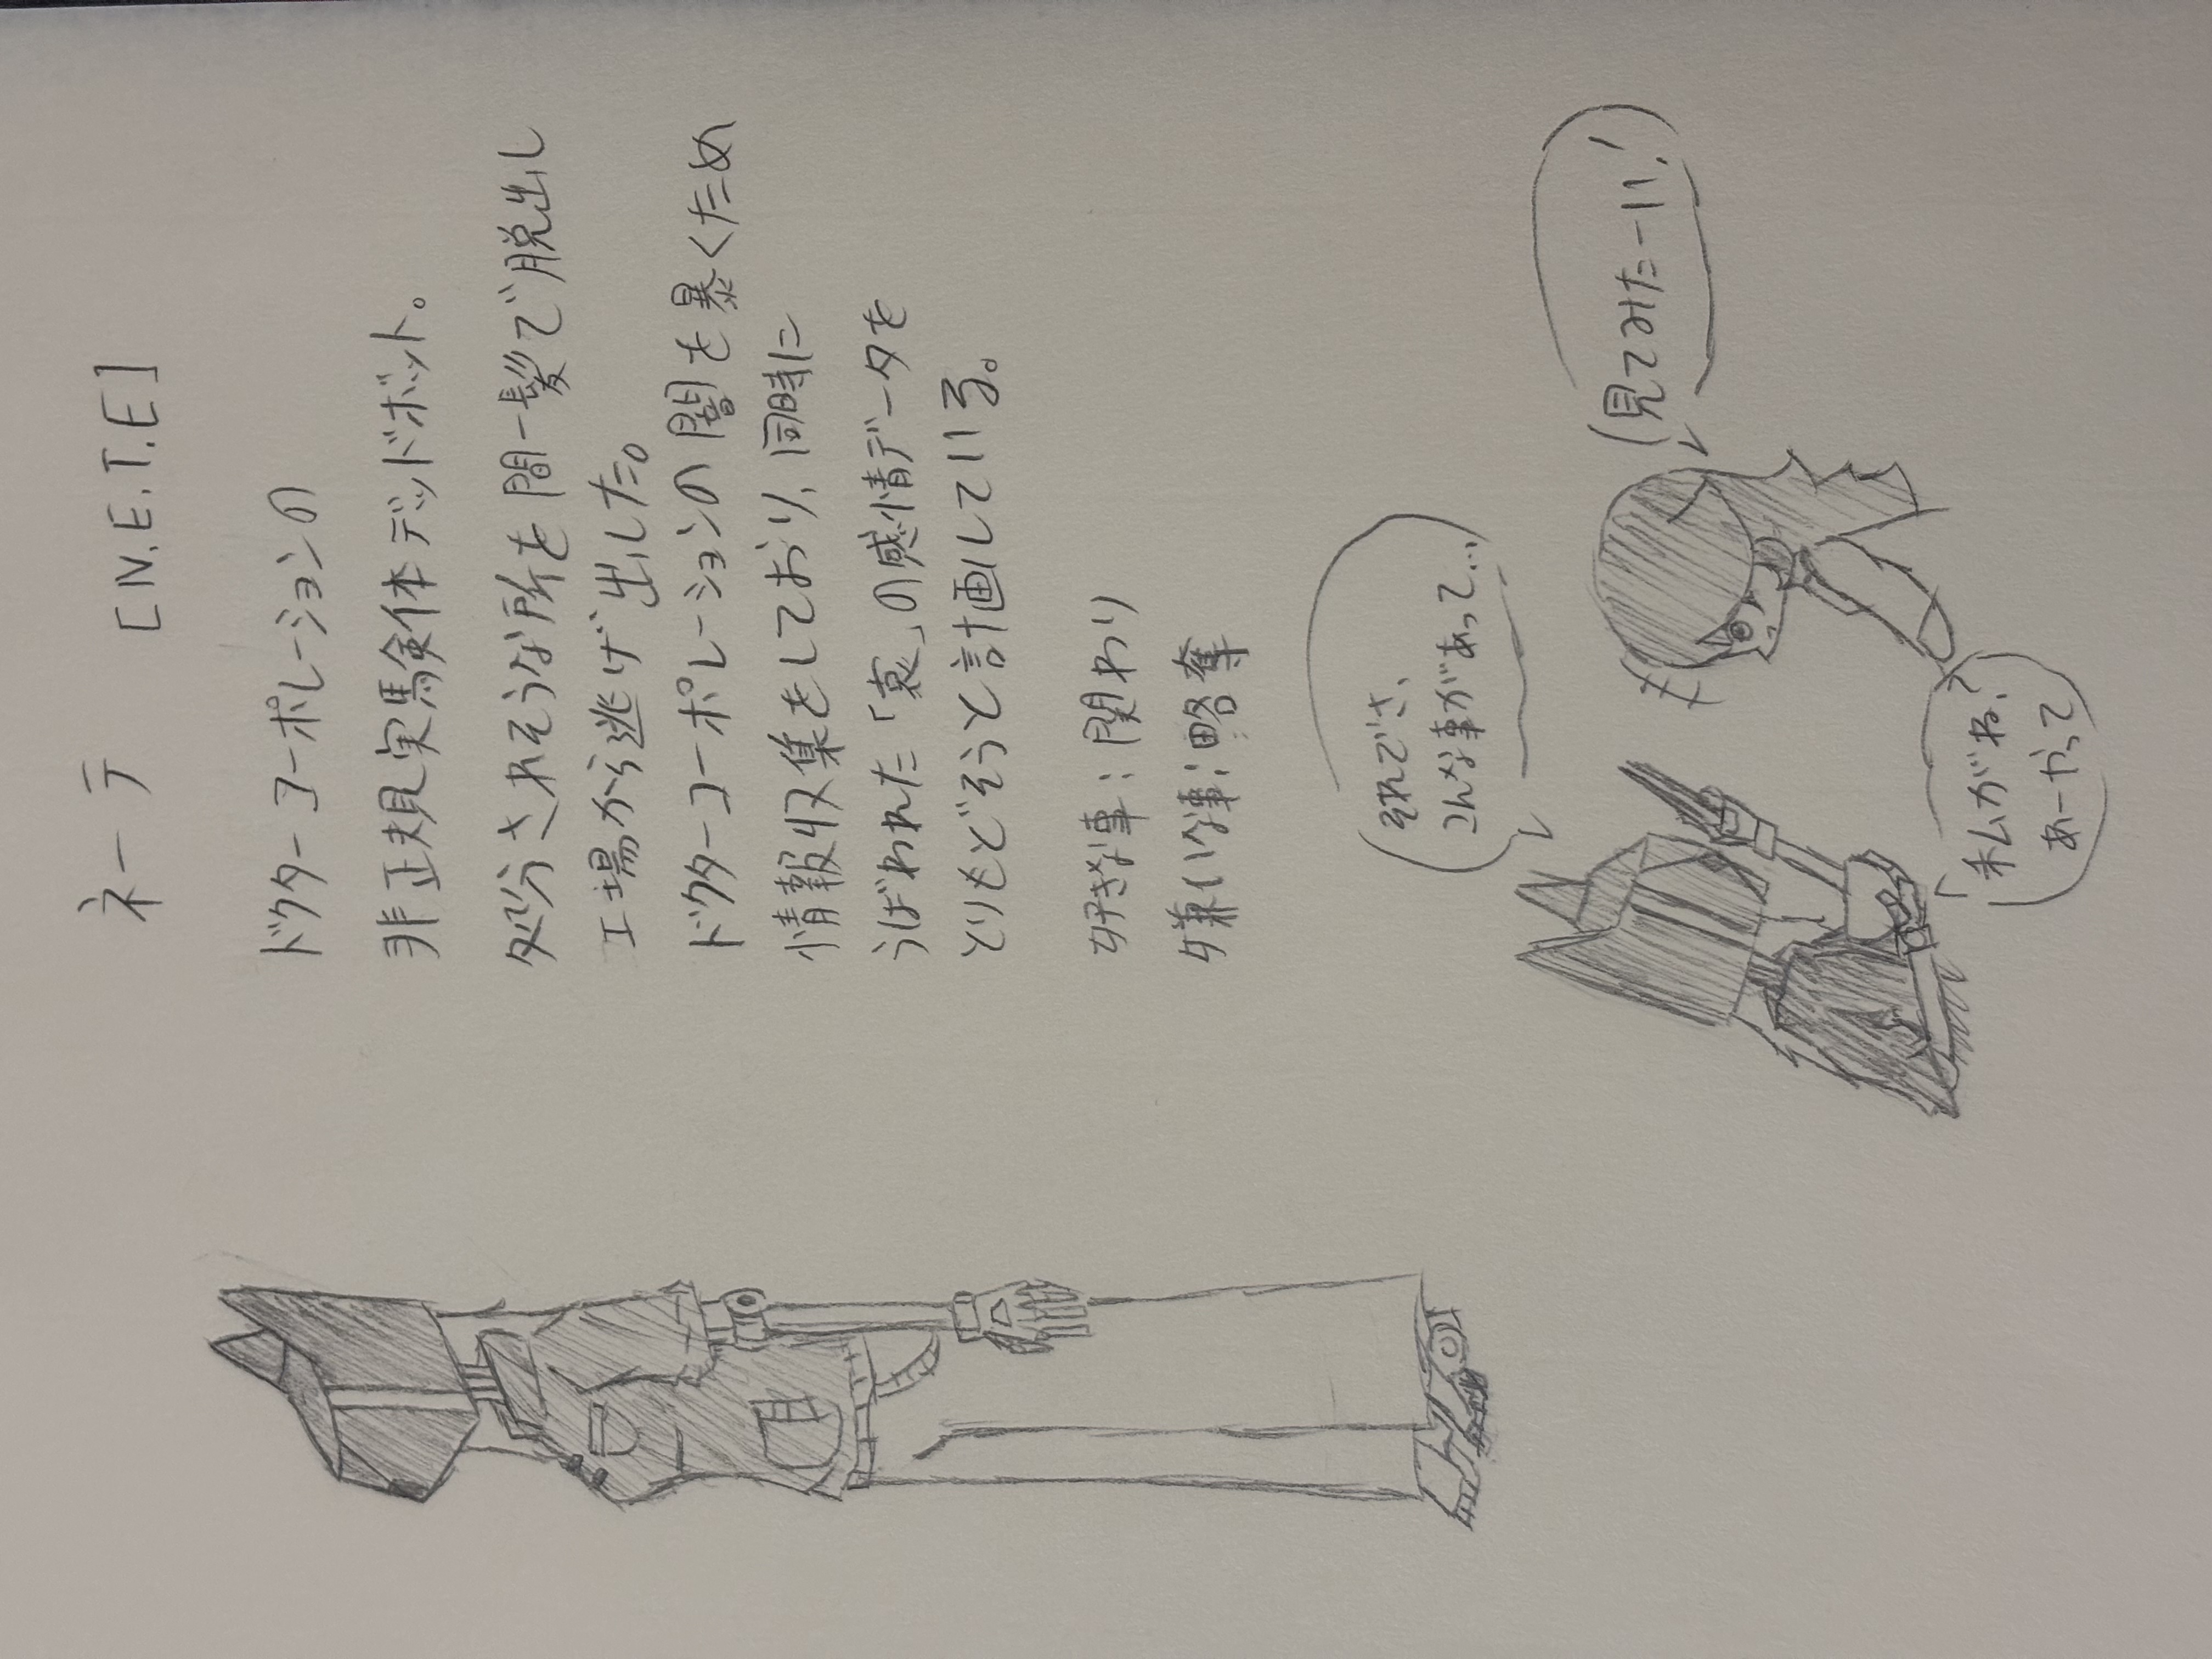 ネーテ [N.E.T.E]
ドクターコーポレーションの
非正規実験体デッドボット。
処分されそうな所を間一髪で脱出し
工場から逃げ出した。
ドクターコーポレーションの闇を暴くため
情報収集をしており、同時に
うばわれた「哀」の感情データを
とりもどそうと計画している。
好きな事：関わり
嫌いな事：略奪
それでさ、
こんな事があって…
見てみたーい！
私がね、
あーやって